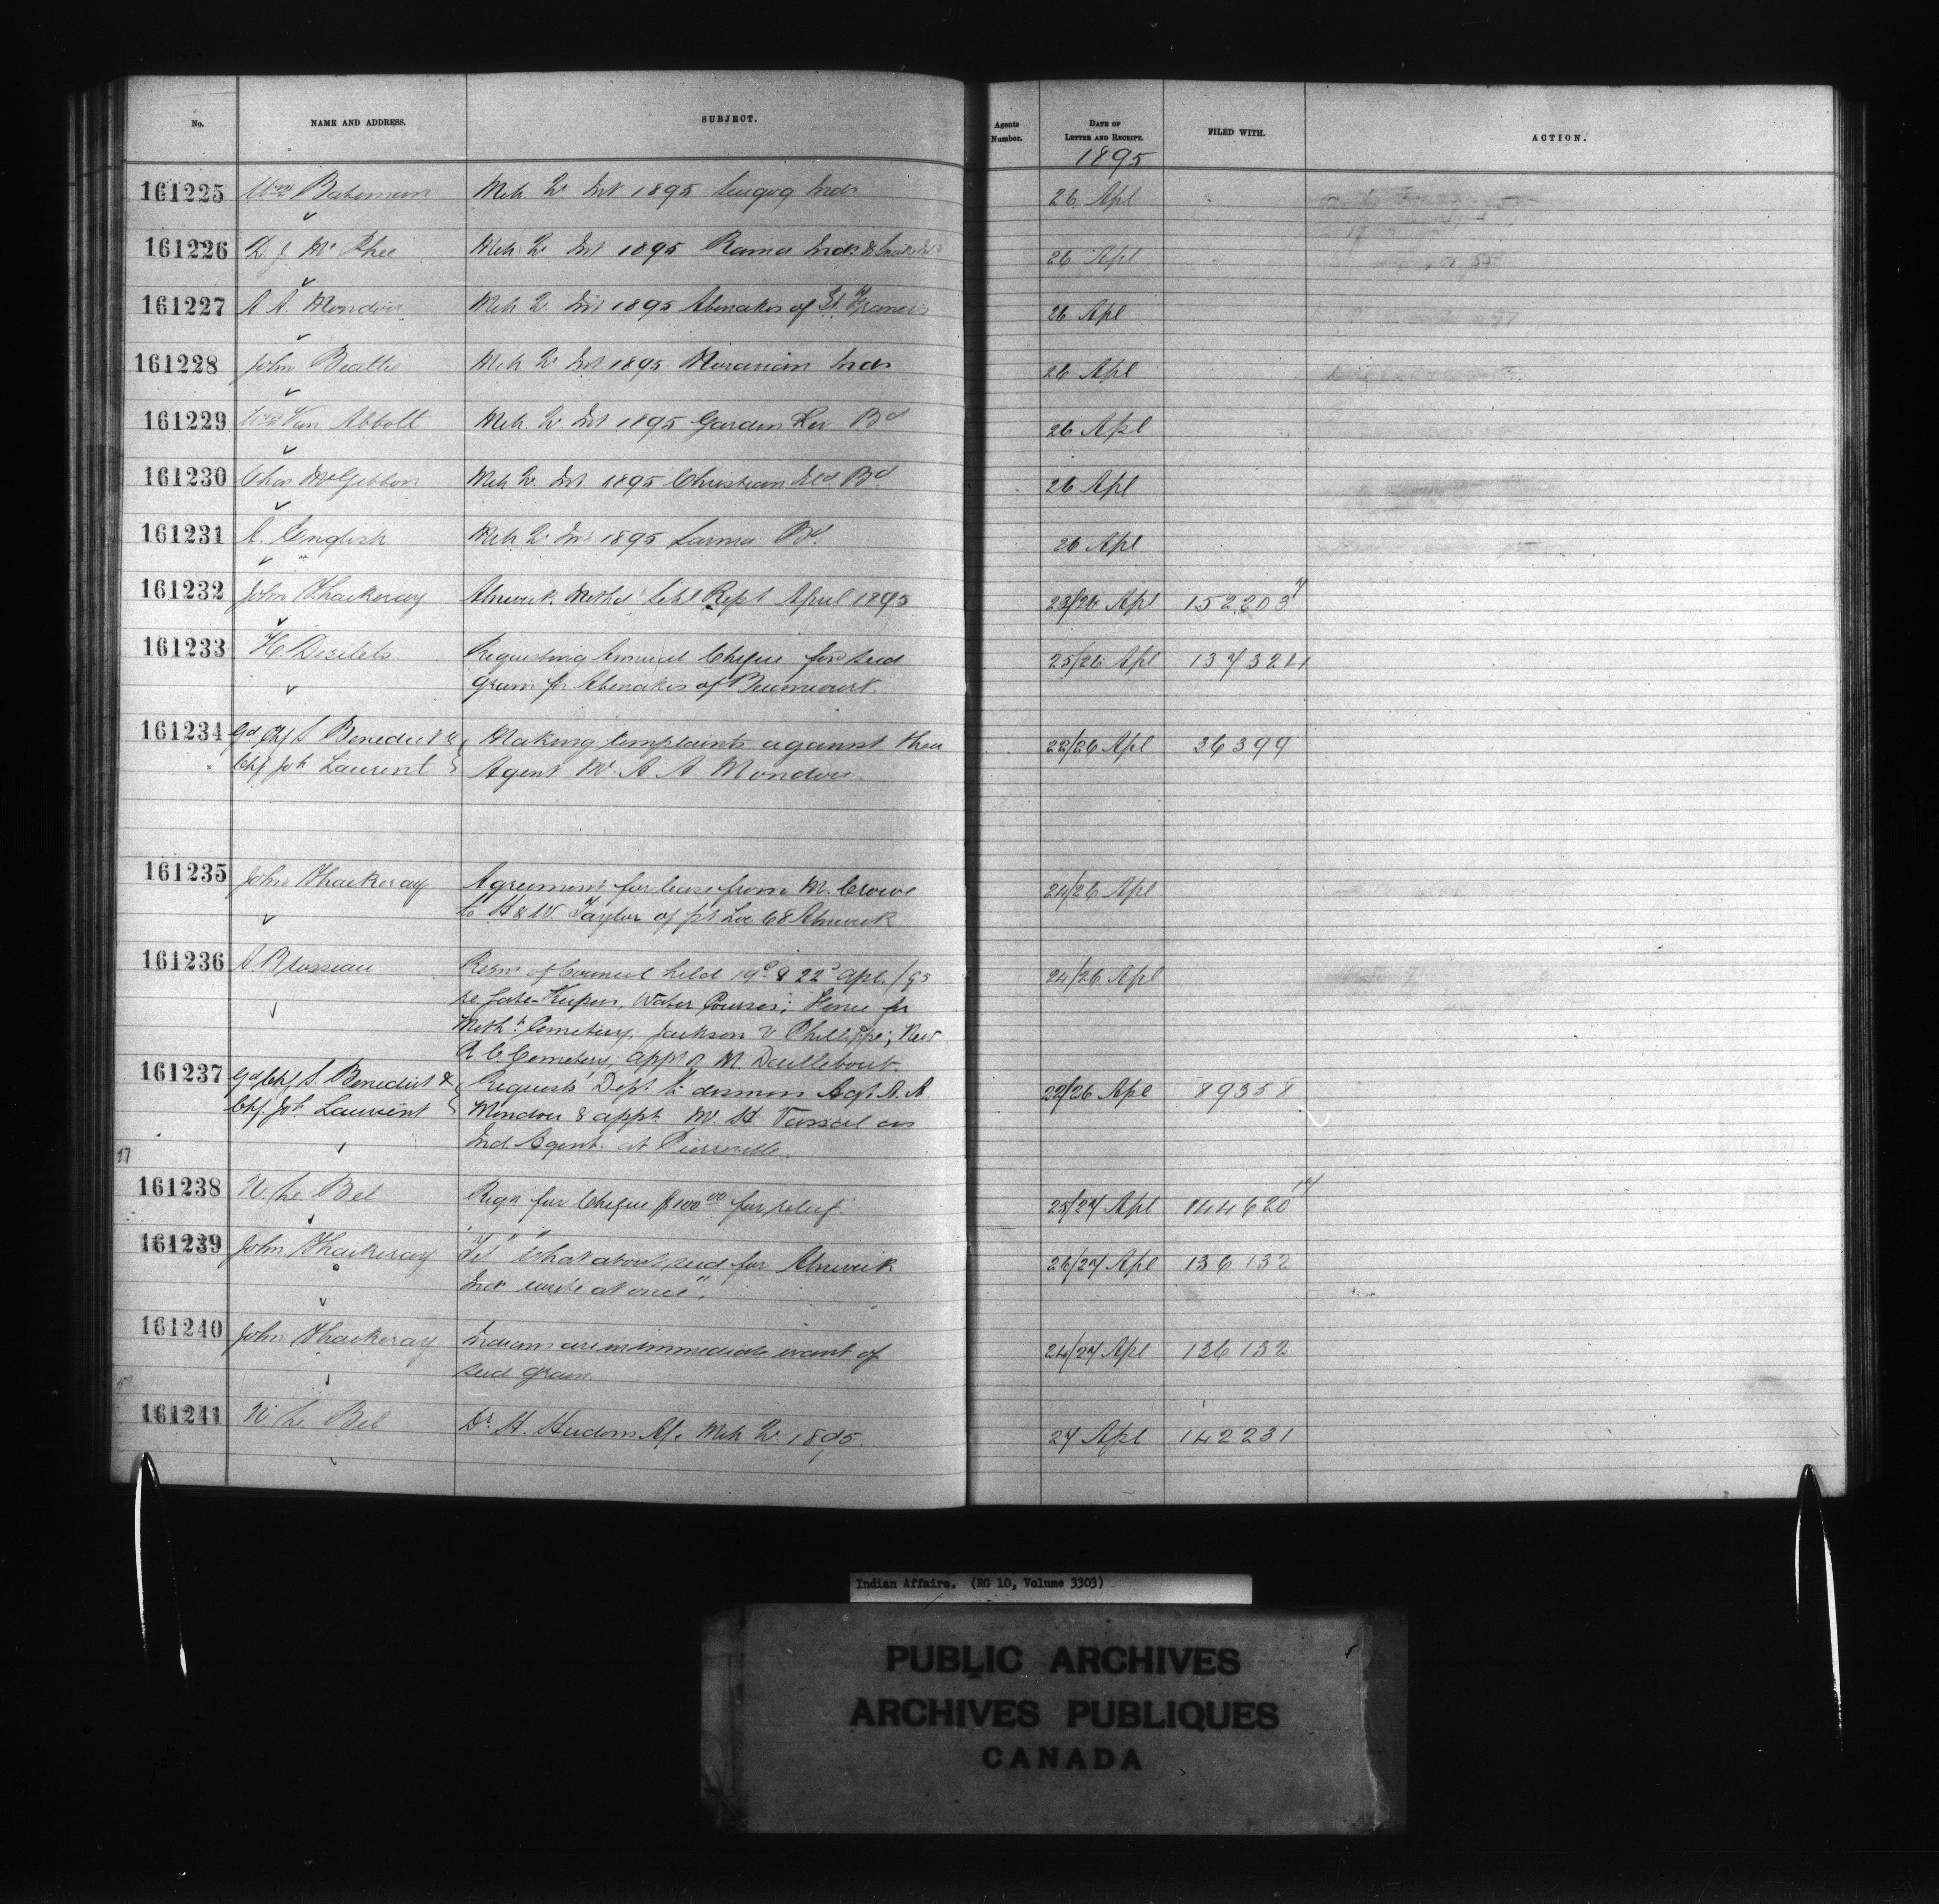 No. NAME AND ADDRESS. SUBJECT. Agents Number. DATE OF LETTER AND RECEIPT. FILED WITH. ACTION.
1895
161225 Wm Bateman Mch Qr Int 1895 Scugog Inds 26 Apl
161226 D. J. McPhee Mch Qr Int 1895 Rama Inds & Snake Isd 26 Apl
161227 A. A. Mondou Mch Qr Int 1895 Abenakis of St. Francis 26 Apl
161228 John Beattie Mch Qr Int 1895 Moravian Inds 26 Apl
161229 Wm Van Abbott Mch Qr Int 1895 Garden Riv Bd 26 Apl
161230 Chas McGibbon Mch Qr Int 1895 Christian Isd. Bd. 26 Apl
161231 A. English Mch Qr Int 1895 Sarnia Bd. 26 Apl
161232 John Thackeray Alnwick Methd Schl Rept April 1895 23/26 Apl 152203
161233 H. Desilets Requesting Annual Cheque for seed 25/26 Apl 137324
grain for Abenakis of Becancourt.
161234 Gd Chf S. Benedict & Making complaints against their 22/26 Apl 36399
Chf Jos Laurent Agent Mr. A A Mondou
161235 John Thackeray Agreement for lease from M. Crowe 24/26 Apl
to H & W. Taylor of pt Lot 68 Alnwick
161236 A Brosseau Resns of Council held 19d & 22d Apl. /95 24/26 Apl
re Gate-Keepers, Water Courses; Fence for
Metht Cemetery, Jackson v Phillips; New
R. C. Cemetery; appt of M. Daillebout.
161237 Gd Chf S. Benedict & Requests Dept to dismiss Agt A. A 22/26 Apl 89358
Chf. Jos. Laurent Mondou & appt Mr. H Vassal as
Ind. Agent at Pierreville.
161238 N. Le Bel Reqn for Cheque $100.00 for relief 25/27 Apl 144620
161239 John Thackeray Tel "What about seed for Alnwick 26/27 Apl 136132
Inds wire at once".
161240 John Thackeray Indians are in immediate want of 24/27 Apl 136132
seed grain.
161241 N. Le Bel Dr. H. Hudon A/c Mch Qr. 1895. 27 Apl 142231
Indian Affairs. (RG 10, Volume 3303)
PUBLIC ARCHIVES
ARCHIVES PUBLIQUES
CANADA